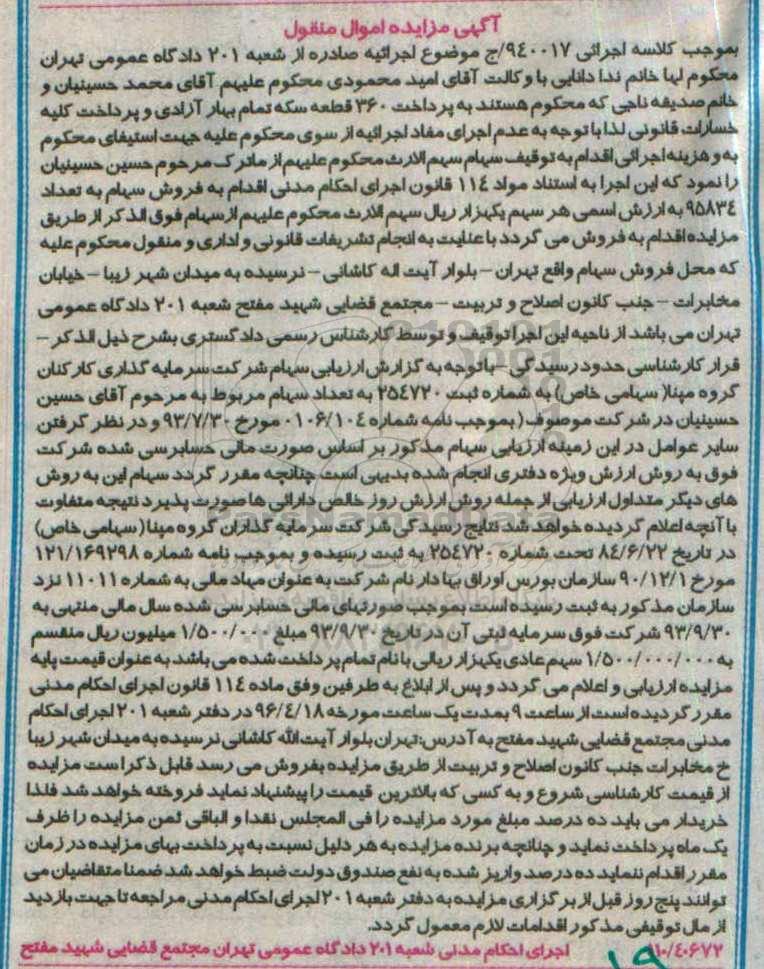 آگهی مزایده اموال منقول
بموجب کلاسه اجرائی ۹۴۰۰۱۷/ج موضوع اجرائیه صادره از شعبه ۲۰۱ دادگاه عمومی تهران
محکوم لها خانم ندا دانایی با وکالت آقای امید محمودی محکوم علیهم آقای محمد حسینیان و
خانم صدیقه ناجی که محکوم هستند به پرداخت ۳۶۰ قطعه سکه تمام بهار آزادی و پرداخت کلیه
خسارات قانونی لذا با توجه به عدم اجرای مفاد اجرائیه از سوی محکوم علیه جهت استیفای محکوم
به و هزینه اجرائی اقدام به توقیف سهام سهم الارث محکوم علیهم از ماترک مرحوم حسین حسینیان
را نمود که این اجرا به استناد مواد ۱۱۴ قانون اجرای احکام مدنی اقدام به فروش سهام به تعداد
۹۵۸۳۴ به ارزش اسمی هر سهم یکهزار ریال سهم الارث محکوم علیهم از سهام فوق الذکر از طریق
مزایده اقدام به فروش می گردد با عنایت به انجام تشریفات قانونی و اداری و منقول محکوم علیه
که محل فروش سهام واقع تهران – بلوار آیت اله کاشانی – نرسیده به میدان شهر زیبا – خیابان
مخابرات – جنب کانون اصلاح و تربیت – مجتمع قضایی شهید مفتح شعبه ۲۰۱ دادگاه عمومی
تهران می باشد از ناحیه این اجرا توقیف و توسط کارشناس رسمی دادگستری بشرح ذیل الذکر –
قرار کارشناسی حدود رسیدگی – باتوجه به گزارش ارزیابی سهام شرکت سرمایه گذاری کارکنان
گروه مپنا( سهامی خاص) به شماره ثبت ۲۵۴۷۲۰ به تعداد سهام مربوط به مرحوم آقای حسین
حسینیان در شرکت موصوف ( بموجب نامه شماره ۰۱۰۶/۱۰۴ مورخ ۹۳/۷/۳۰ و در نظر گرفتن
سایر عوامل در این زمینه ارزیابی سهام مذکور بر اساس صورت مالی حسابرسی شده شرکت
فوق به روش ارزش ویژه دفتری انجام شده بدیهی است چنانچه مقرر گردد سهام این به روش
های دیگر متداول ارزیابی از جمله روش ارزش روز خالص دارائی ها صورت پذیرد نتیجه متفاوت
با آنچه اعلام گردیده خواهد شد نتایج رسیدگی شرکت سرمایه گذاران گروه مپنا (سهامی خاص)
در تاریخ ۸۴/۶/۲۲ تحت شماره ۲۵۴۷۲۰ به ثبت رسیده و بموجب نامه شماره ۱۲۱/۱۶۹۲۹۸
مورخ ۹۰/۱۲/۱ سازمان بورس اوراق بهادار نام شرکت به عنوان مهاد مالی به شماره ۱۱۰۱۱ نزد
سازمان مذکور به ثبت رسیده است بموجب صورتهای مالی حسابرسی شده سال مالی منتهی به
۹۳/۹/۳۰ شرکت فوق سرمایه ثبتی آن در تاریخ ۹۳/۹/۳۰ مبلغ ۱/۵۰۰/۰۰۰ میلیون ریال منقسم
به ۱/۵۰۰/۰۰۰/۰۰۰ سهم عادی یکهزار ریالی با نام تمام پرداخت شده می باشد به عنوان قیمت پایه
مزایده ارزیابی و اعلام می گردد و پس از ابلاغ به طرفین وفق ماده ۱۱۴ قانون اجرای احکام مدنی
مقرر گردیده است از ساعت ۹ بمدت یک ساعت مورخه ۹۶/۴/۱۸ در دفتر شعبه ۲۰۱ اجرای احکام
مدنی مجتمع قضایی شهید مفتح به آدرس:تهران بلوار آیت الله کاشانی نرسیده به میدان شهر زیبا
خ مخابرات جنب کانون اصلاح و تربیت از طریق مزایده بفروش می رسد قابل ذکر است مزایده
از قیمت کارشناسی شروع و به کسی که بالاترین قیمت را پیشنهاد نماید فروخته خواهد شد فلذا
خریدار می باید ده درصد مبلغ مورد مزایده را فی المجلس نقدا و الباقی ثمن مزایده را ظرف
یک ماه پرداخت نماید و چنانچه برنده مزایده به هر دلیل نسبت به پرداخت بهای مزایده در زمان
مقرر اقدام ننماید ده درصد واریز شده به نفع صندوق دولت ضبط خواهد شد ضمنا متقاضیان می
توانند پنج روز قبل از برگزاری مزایده به دفتر شعبه ۲۰۱ اجرای احکام مدنی مراجعه تا جهت بازدید
از مال توقیفی مذکور اقدامات لازم معمول گردد.
۱۱۰/۴۰۶۷۲ اجرای احکام مدنی شعبه ۲۰۱ دادگاه عمومی تهران مجتمع قضایی شهید مفتح
۱۹